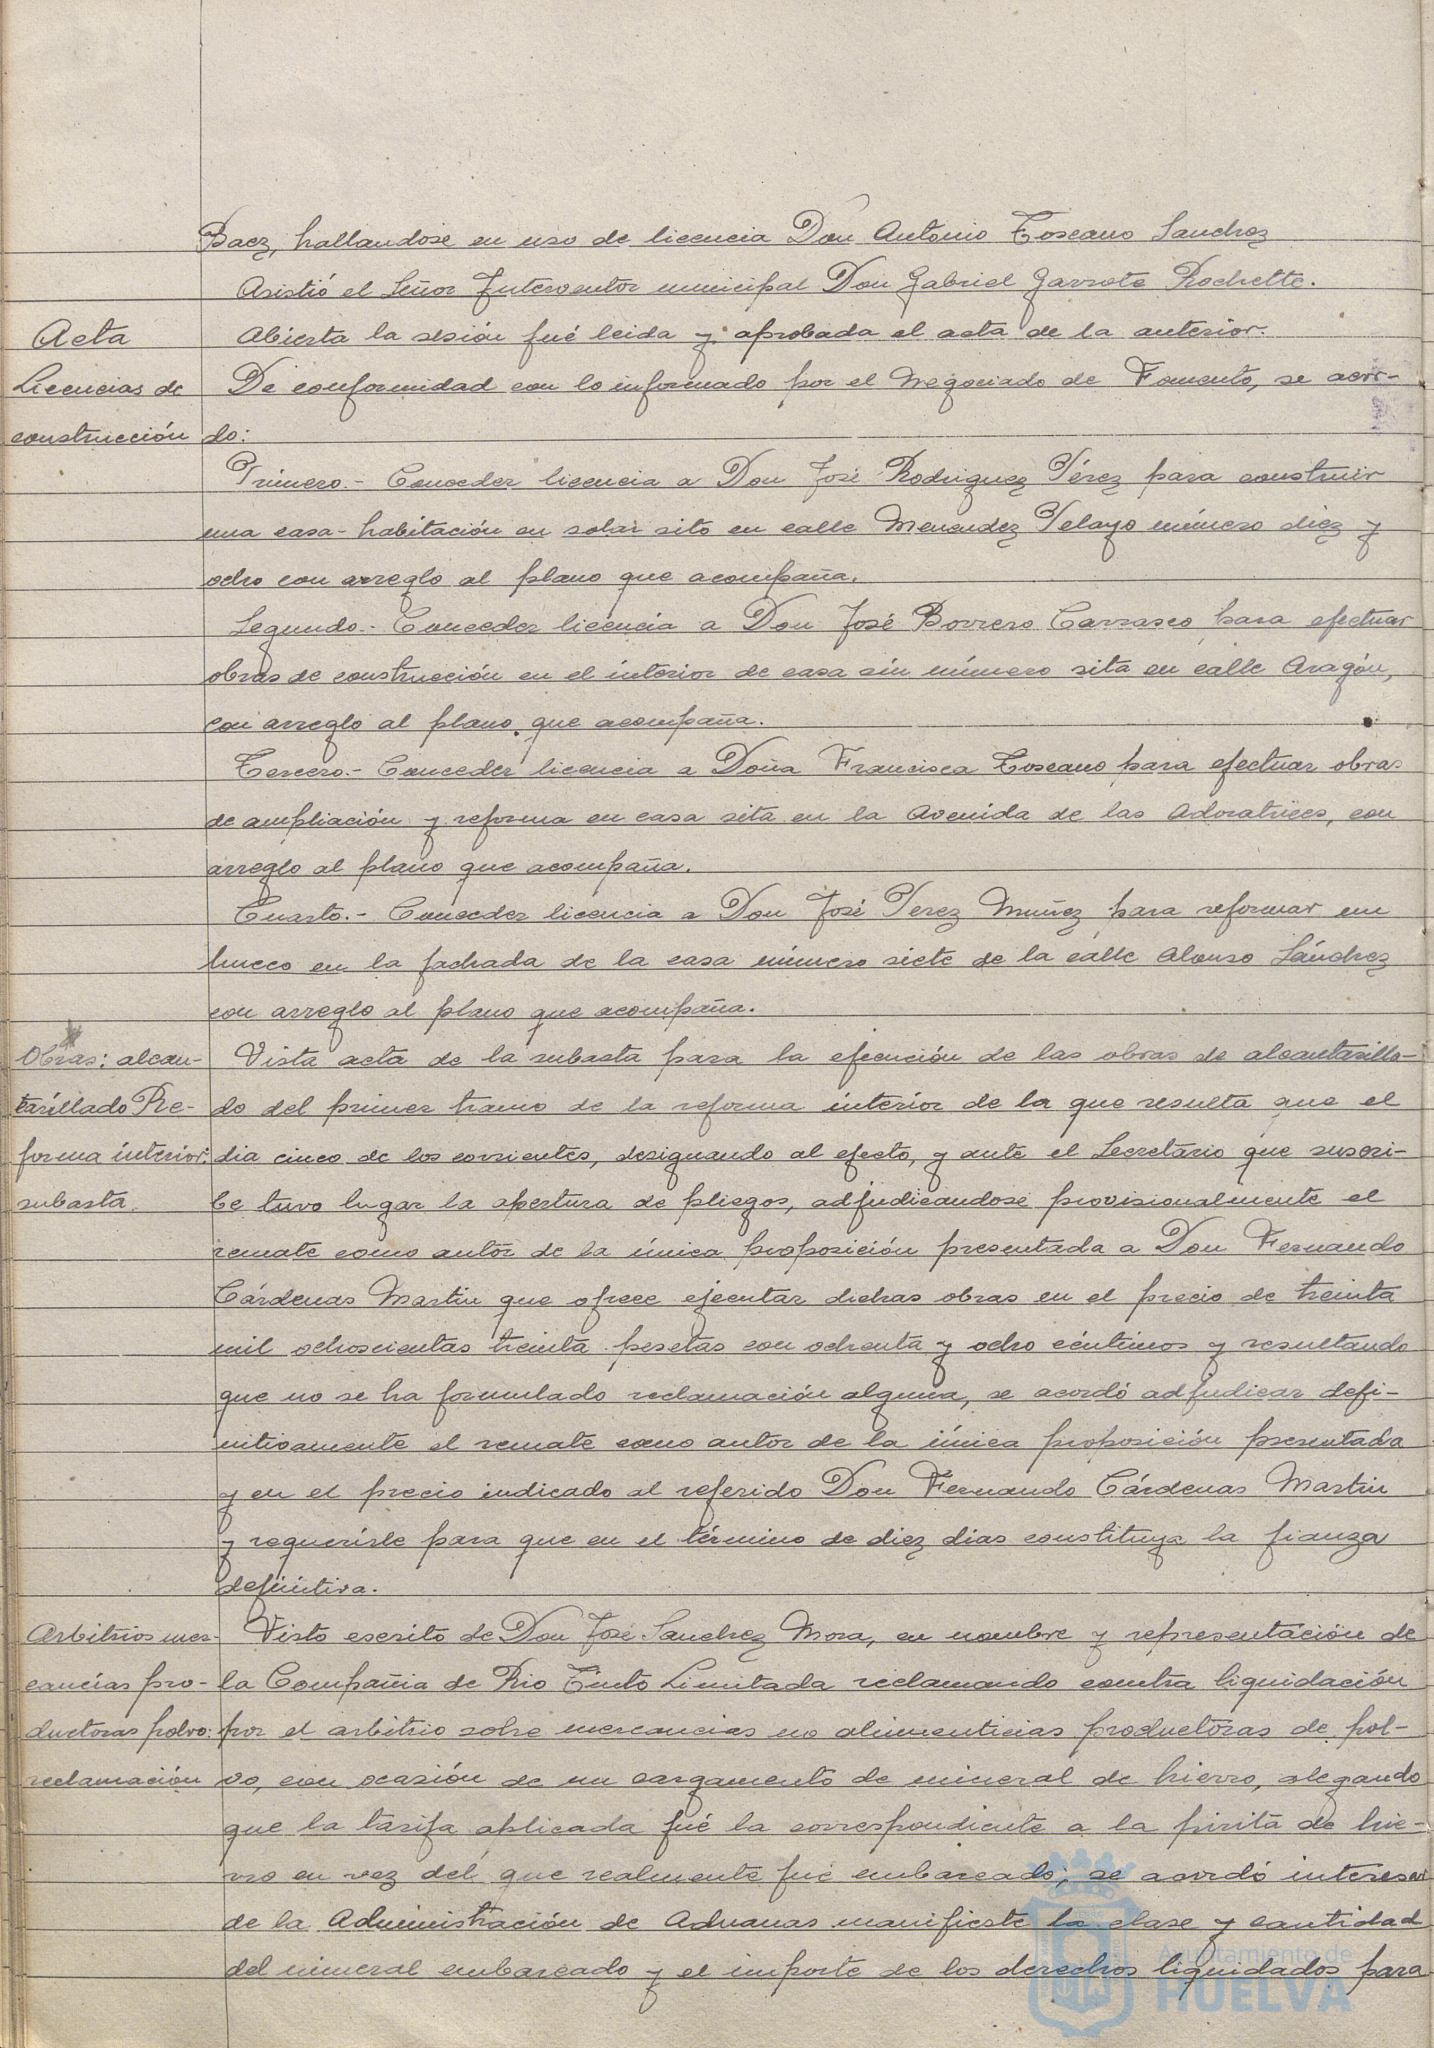 Baez, hallandose en uso de licencia Don Antonio Toscano Sanchez
Asistió el Señor Interventor municipal Don Gabriel Garrote Rochette.
Acta
Abierta la sesión fué leida y aprobada el acta de la anterior.
Licencias de
De conformidad con lo informado por el Negociado de Fomento, se acor-
construcción
do:
Primero.- Conceder licencia a Don José Rodriguez Pérez para construir
una casa-habitación en solar sito en calle Menendez Pelayo número diez y
ocho con arreglo al plano que acompaña.
Segundo.- Conceder licencia a Don José Borrero Carrasco para efectuar
obras de construcción en el interior de casa sin número sita en calle Aragón,
con arreglo al plano que acompaña.
Tercero.- Conceder licencia a Doña Francisca Toscano para efectuar obras
de ampliación y reforma en casa sita en la Avenida de las Adoratrices, con
arreglo al plano que acompaña.
Cuarto.- Conceder licencia a Don José Perez Muñez para reformar un
hueco en la fachada de la casa número siete de la calle Alonso Sánchez
con arreglo al plano que acompaña.
Obras: alcan-
Vista acta de la subasta para la ejecución de las obras de alcantarilla-
tarillado Re-
do del primer tramo de la reforma interior de la que resulta que el
forma interior:
dia cinco de los corrientes, designando al efecto, y ante el Secretario que suscri-
subasta.
be tuvo lugar la apertura de pliegos, adjudicandose provisionalmente el
remate como autor de la única proposición presentada a Don Fernando
Cárdenas Martin que ofrece ejecutar dichas obras en el precio de treinta
mil ochoscientas treinta pesetas con ochenta y ocho céntimos y resultando
que no se ha formulado reclamación alguna, se acordó adjudicar defi-
nitivamente el remate como autor de la única proposición presentada
y en el precio indicado al referido Don Fernando Cárdenas Martin
y requerirle para que en el término de diez dias constituya la fianza
definitiva.
Arbitrios mer-
Visto escrito de Don José Sanchez Mora, en nombre y representación de
cancías pro-
la Compañia de Rio Tinto Limitada reclamando contra liquidación
ductoras polvo:
por el arbitrio sobre mercancias no alimenticias productoras de pol-
reclamación
vo, con ocasión de un cargamento de mineral de hierro, alegando
que la tarifa aplicada fué la correspondiente a la pirita de hie-
rro en vez del que realmente fué embarcado; se acordó interesar
de la Administración de Aduanas manifieste la clase y cantidad
del mineral embarcado y el importe de los derechos liquidados para
Ayuntamiento de
HUELVA